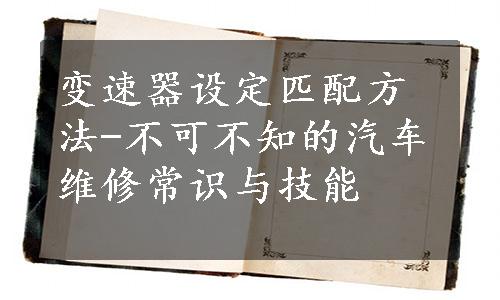 变速器设定匹配方
法-不可不知的汽车
维修常识与技能